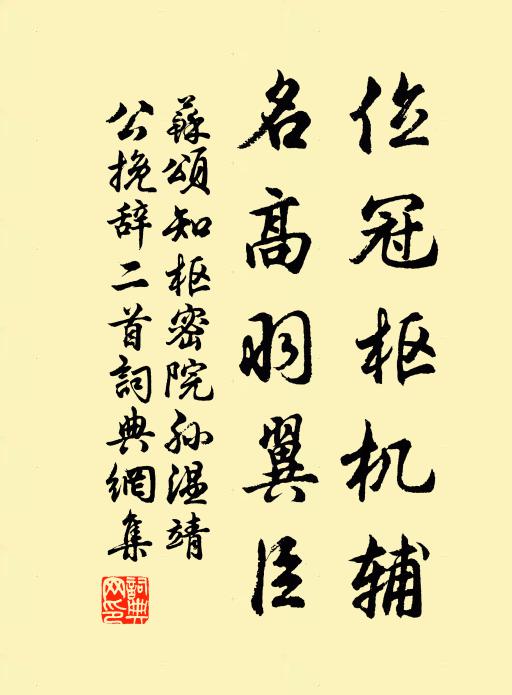 位冠枢机辅
名高羽翼臣
蘇頌知枢密院孙温靖
公挽辞二首詞典網集
詞典网印